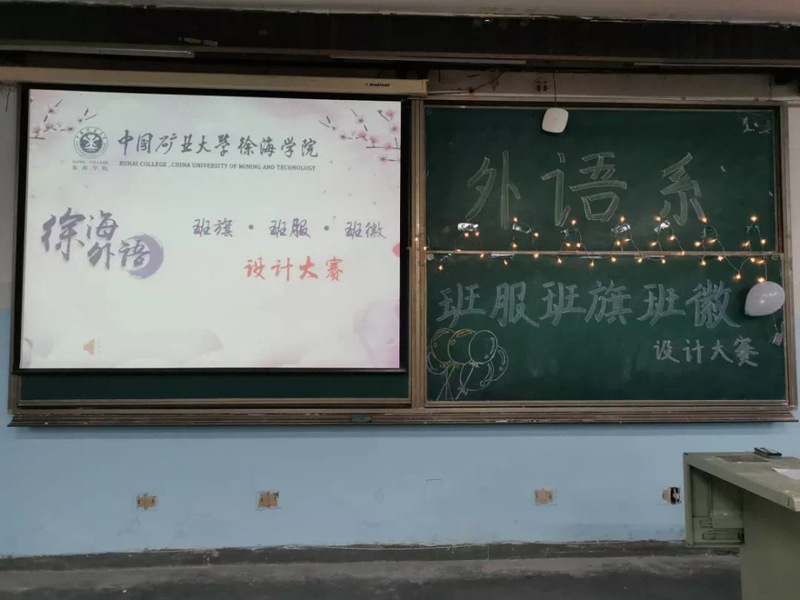 中国矿业大学徐海学院
XUHAI COLLEGE, CHINA UNIVERSITY OF MINING AND TECHNOLOGY
XUHAI COLLEGE
徐海学院
徐海
外语
班旗·班服·班徽
设计大赛
外语系
班服班旗班徽
设计大赛